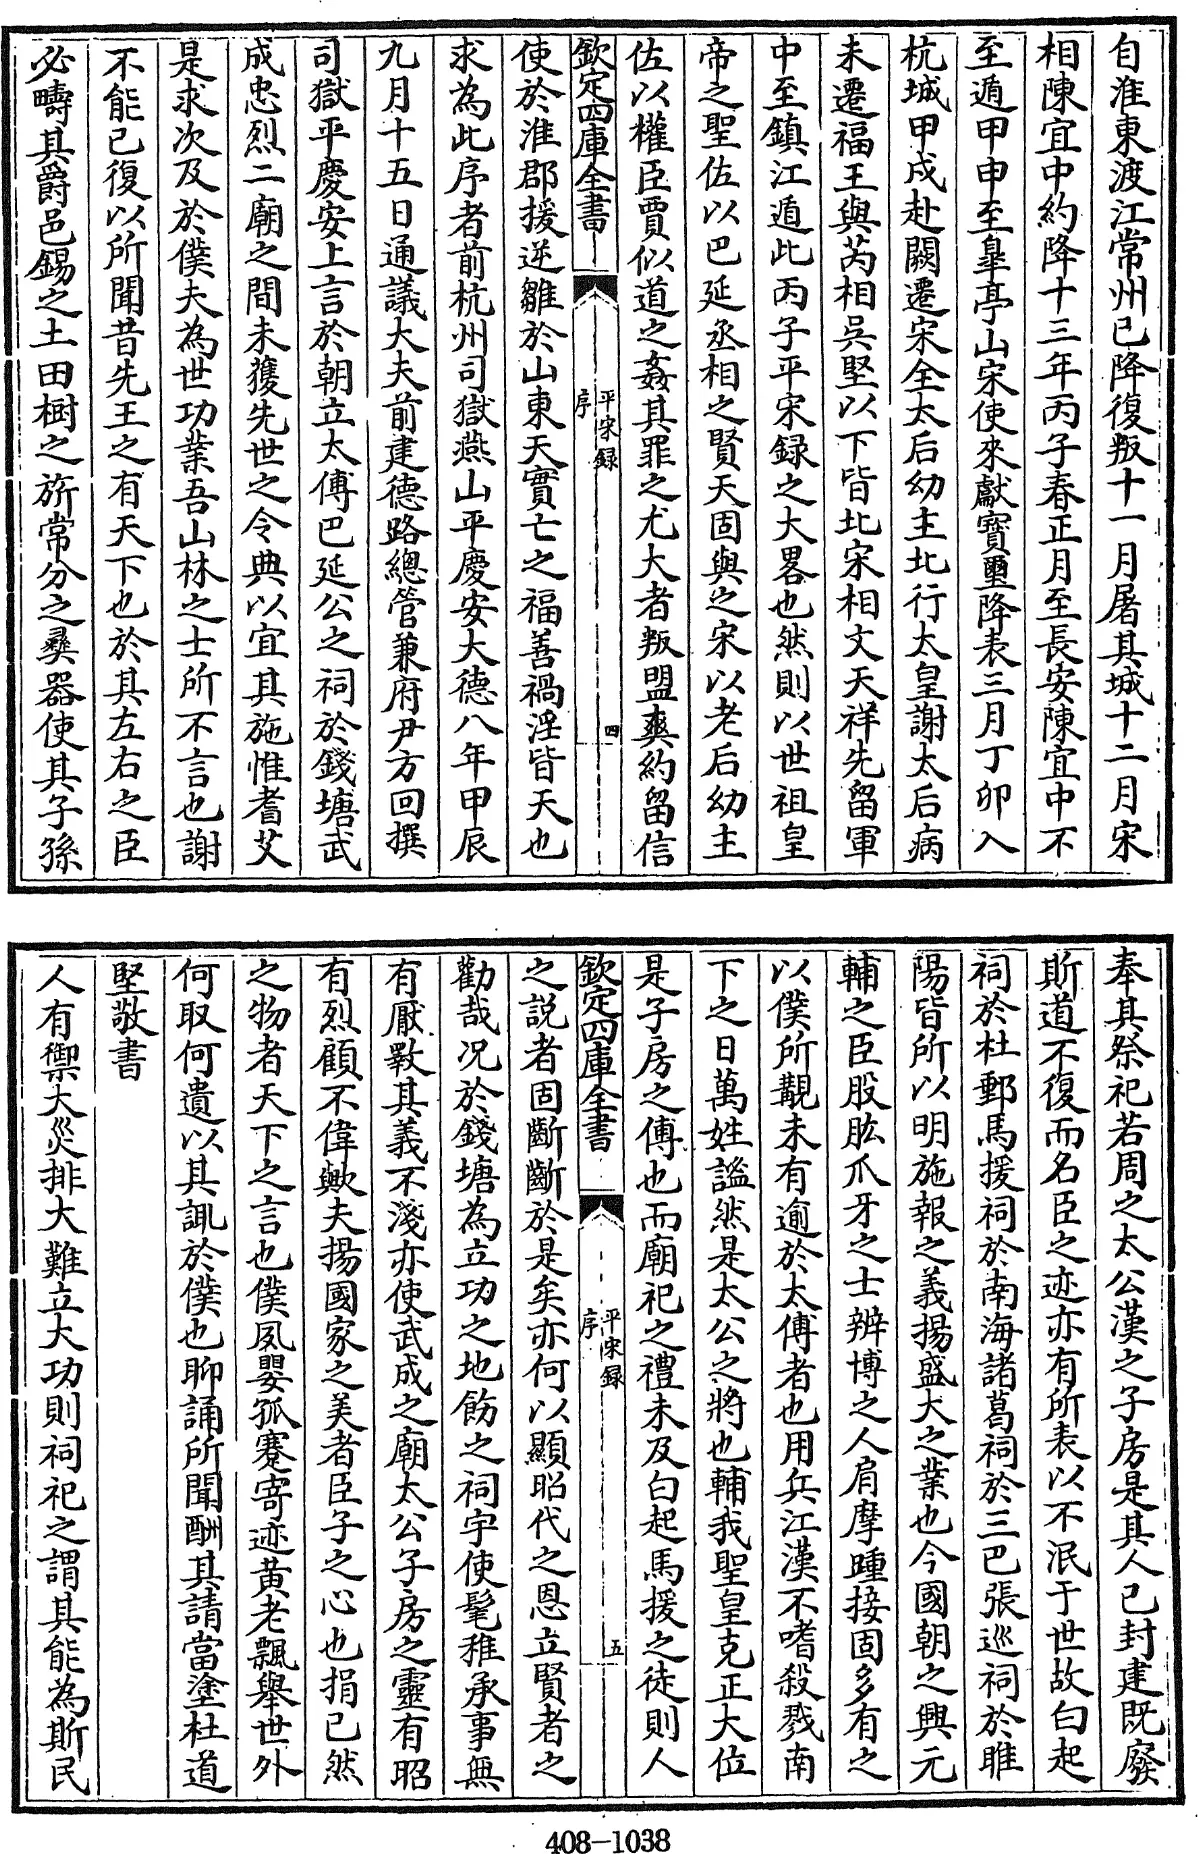 自淮東渡江常州已降復叛十一月屠其城十二月宋
相陳宜中約降十三年丙子春正月至長安陳宜中不
至遁甲申至臯亭山宋使來獻寶璽降表三月丁卯入
杭城甲戌赴闕遷宋全太后幼主北行太皇謝太后病
未遷福王與芮相吳堅以下皆北宋相文天祥先留軍
中至鎮江遁此丙子平宋録之大畧也然則以世祖皇
帝之聖佐以巴延丞相之賢天固與之宋以老后幼主
佐以權臣賈似道之姦其罪之尤大者叛盟爽約留信
欽定四庫全書
平宋録
序
四
使於淮郡援逆雛於山東天實亡之福善禍淫皆天也
求為此序者前杭州司獄燕山平慶安大德八年甲辰
九月十五日通議大夫前建德路總管兼府尹方回撰
司獄平慶安上言於朝立太傅巴延公之祠於錢塘武
成忠烈二廟之間未獲先世之令典以宜其施惟耆艾
是求次及於僕夫為世功業吾山林之士所不言也謝
不能已復以所聞昔先王之有天下也於其左右之臣
必疇其爵邑錫之土田樹之旂常分之彝器使其子孫
奉其祭祀若周之太公漢之子房是其人已封建既廢
斯道不復而名臣之迹亦有所表以不泯于世故白起
祠於杜郵馬援祠於南海諸葛祠於三巴張巡祠於睢
陽皆所以明施報之義揚盛大之業也今國朝之興元
輔之臣股肱爪牙之士辨博之人肩摩踵接固多有之
以僕所覩未有逾於太傅者也用兵江漢不嗜殺戮南
下之日萬姓謐然是太公之將也輔我聖皇克正大位
是子房之傅也而廟祀之禮未及白起馬援之徒則人
欽定四庫全書
平宋録
序
五
之説者固斷斷於是矣亦何以顯昭代之恩立賢者之
勸哉况於錢塘為立功之地飭之祠宇使髦稚承事無
有厭斁其義不淺亦使武成之廟太公子房之靈有昭
有烈顧不偉歟夫揚國家之美者臣子之心也捐已然
之物者天下之言也僕夙嬰孤蹇寄迹黄老飄舉世外
何取何遺以其諷於僕也聊誦所聞酬其請當塗杜道
堅敬書
人有禦大災排大難立大功則祠祀之謂其能為斯民
408-1038